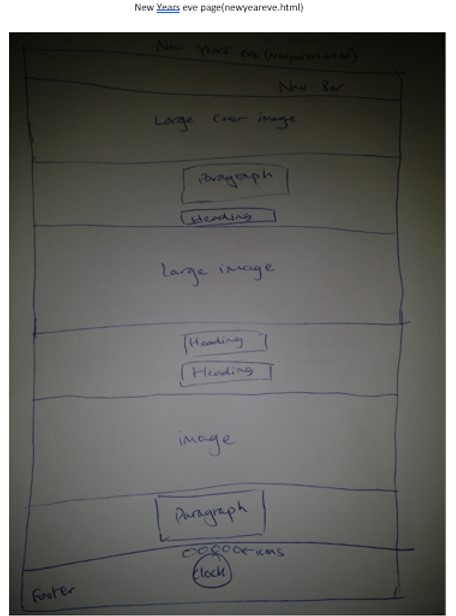 New Years eve page(newyeareve.html)
New Years eve
Nav Bar
Large Cover image
Paragraph
Heading
Large image
Heading
Heading
image
Paragraph
Clock
Footer